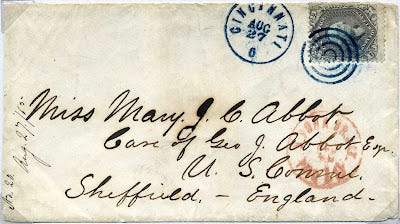 CINCINNATI
AUG
27
O
Miss Mary J. C. Abbot
Care of Geo J. Abbot Esqr.
U. S. Consul
Sheffield. – England.
Aug. 27/65.